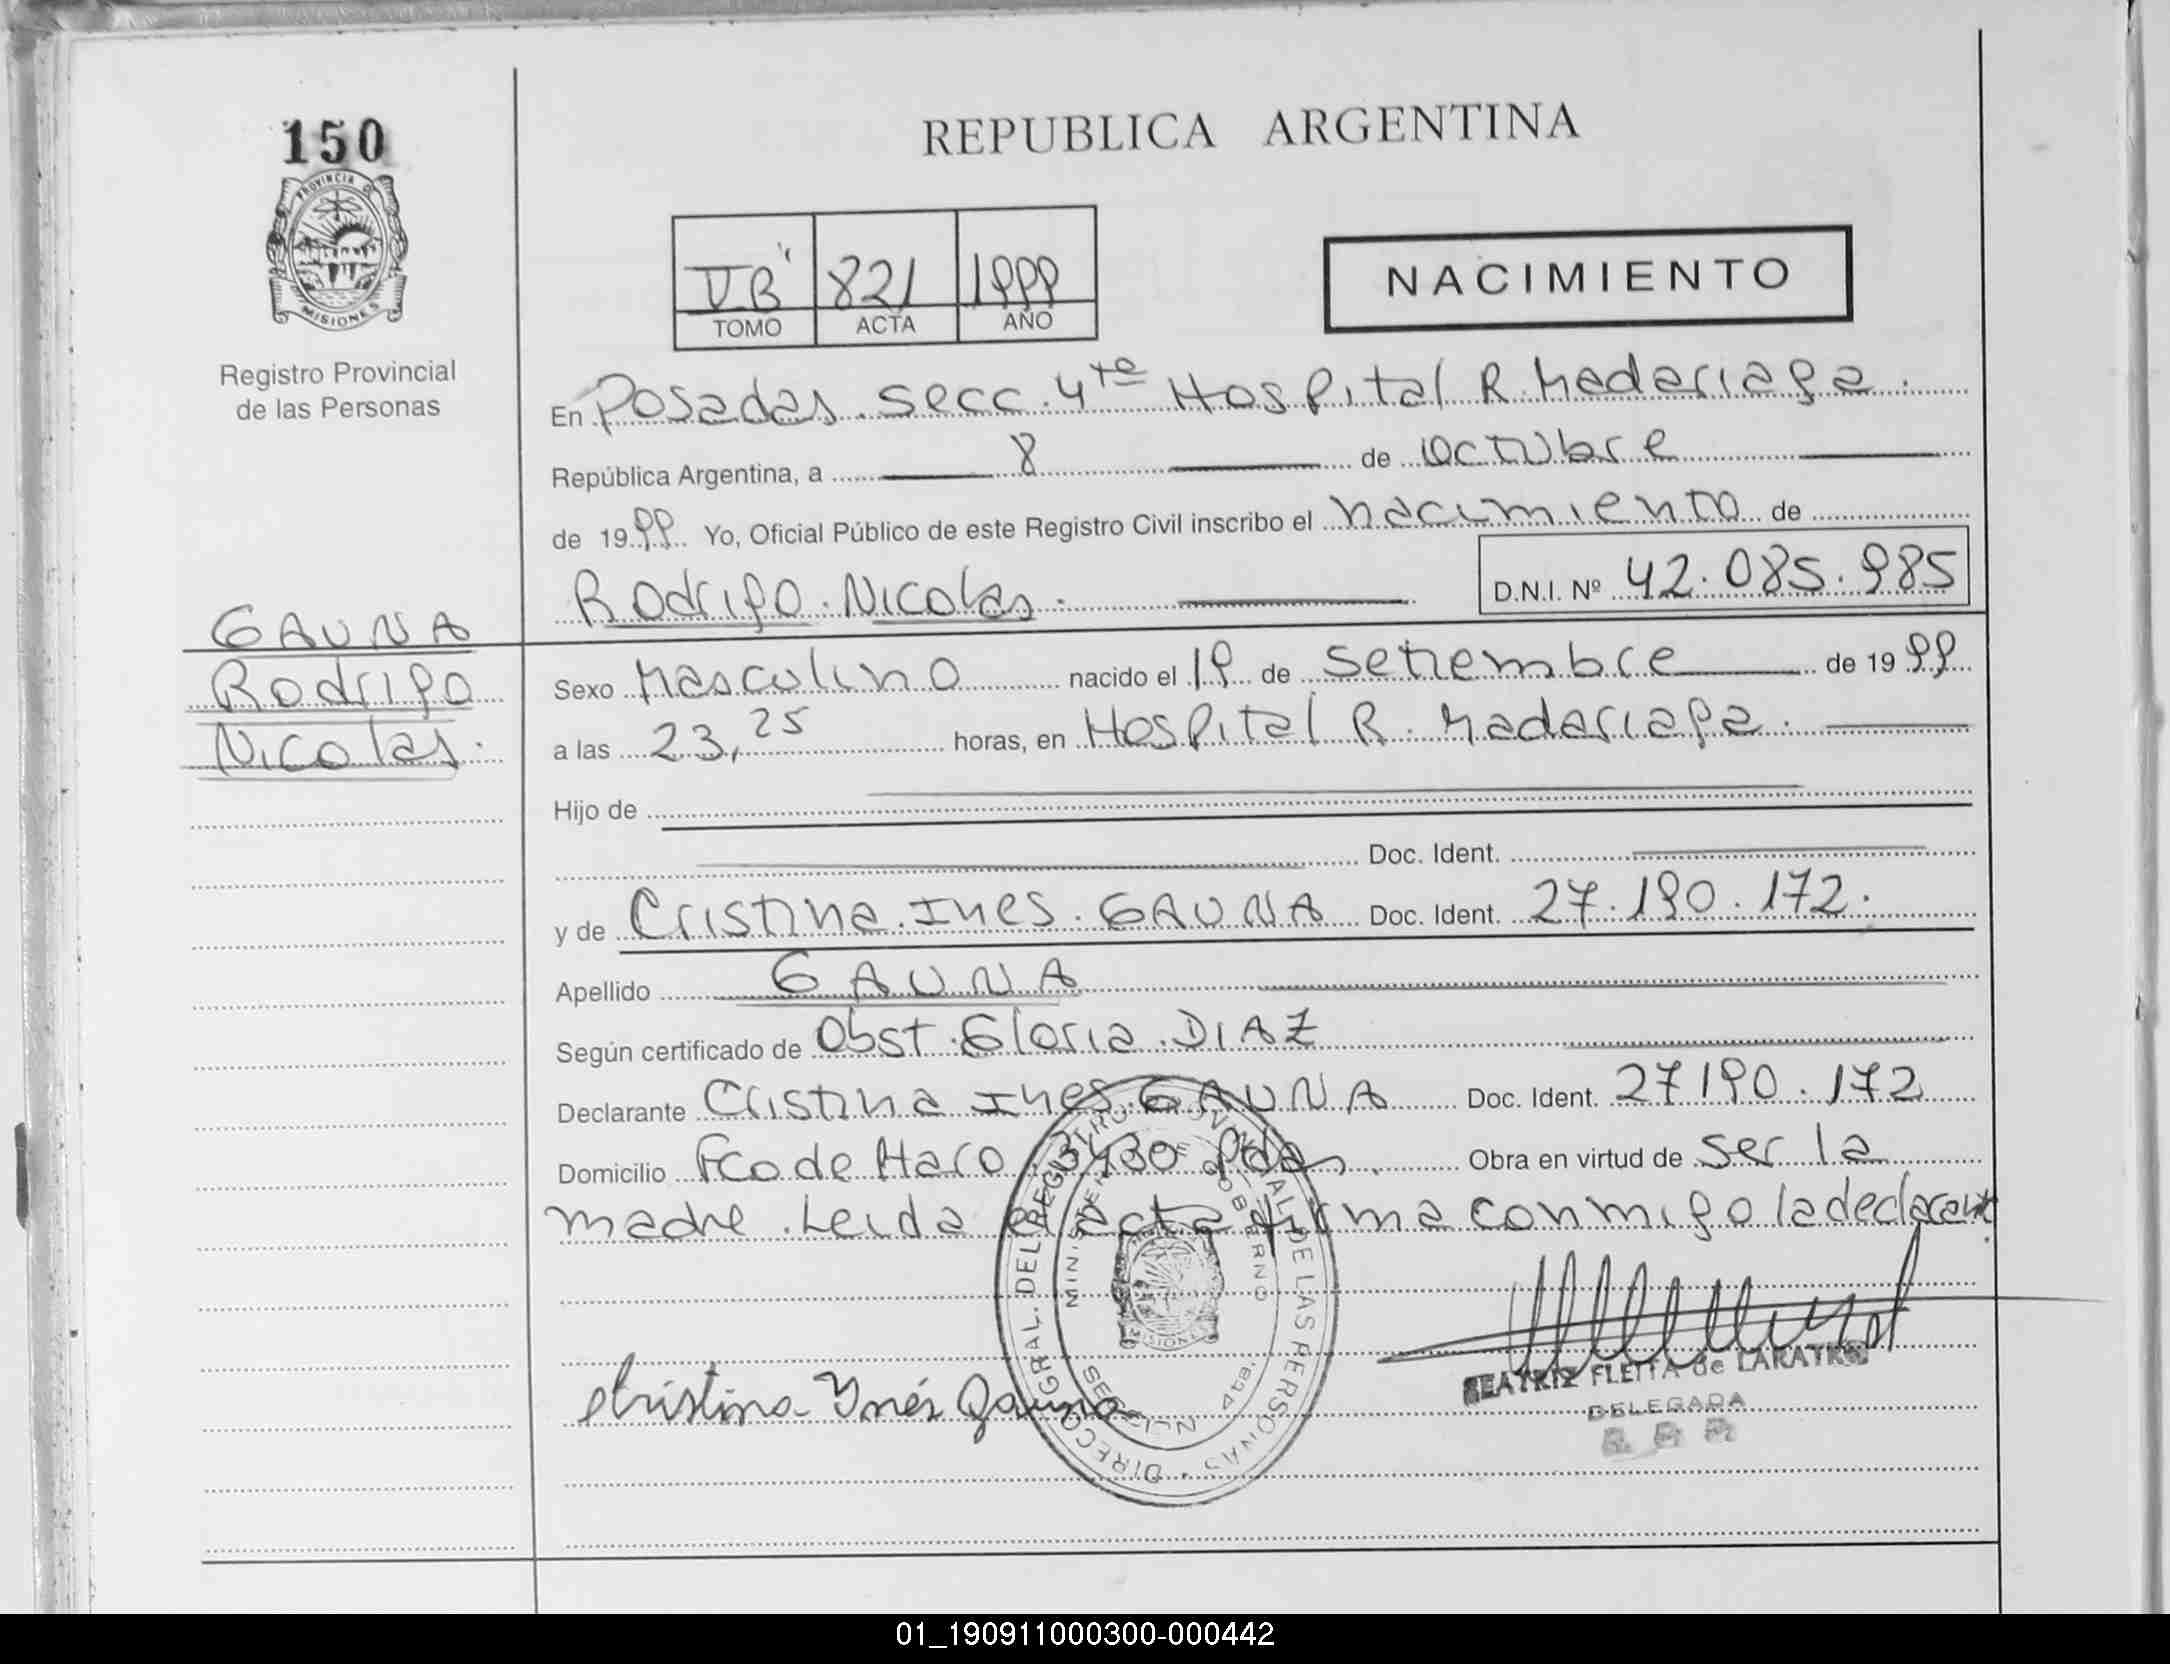 150
PROVINCIA DE
MISIONES
Registro Provincial
de las Personas
REPUBLICA ARGENTINA
VB' 821 1999
TOMO ACTA AÑO
NACIMIENTO
En Posadas. secc. 4ta Hospital R. Madariaga.
República Argentina, a 8 de octubre
de 1999 Yo, Oficial Público de este Registro Civil inscribo el nacimiento de
Rodrigo. Nicolas. D.N.I. Nº 42.085.985
GAUNA
Rodrigo
Nicolas.
Sexo Masculino nacido el 19 de Setiembre de 1999
a las 23,25 horas, en Hospital R. Madariaga.
Hijo de
Doc. Ident.
y de Cristina. Ines. GAUNA Doc. Ident. 27.190.172.
Apellido GAUNA
Según certificado de Obst. Gloria. DIAZ
Declarante Cristina Ines. GAUNA Doc. Ident. 27190.172
Domicilio Fco de Haro 3430 Pdas. Obra en virtud de ser la
madre. Leida el acta firma conmigo la declarante.
DIRECC. GRAL. DEL REGISTRO PROVINCIAL DE LAS PERSONAS
MINISTERIO DE GOBIERNO
MISIONES
Cristina Ynés Gauna
BEATRIZ FLEITA de LARATRO
DELEGADA
01_190911000300-000442